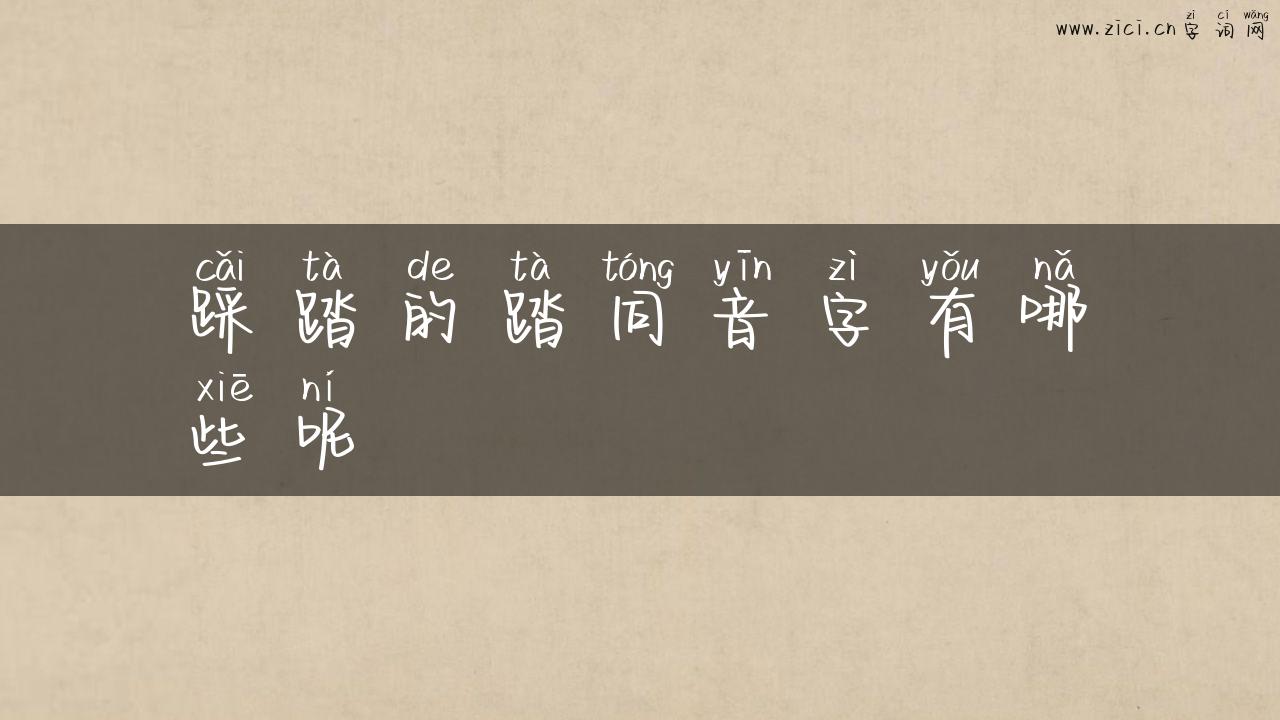 zì cí wǎng
www.zici.cn 字词网
cǎi tà de tà tóng yīn zì yǒu nǎ
踩踏的踏同音字有哪
xiē ní
些呢